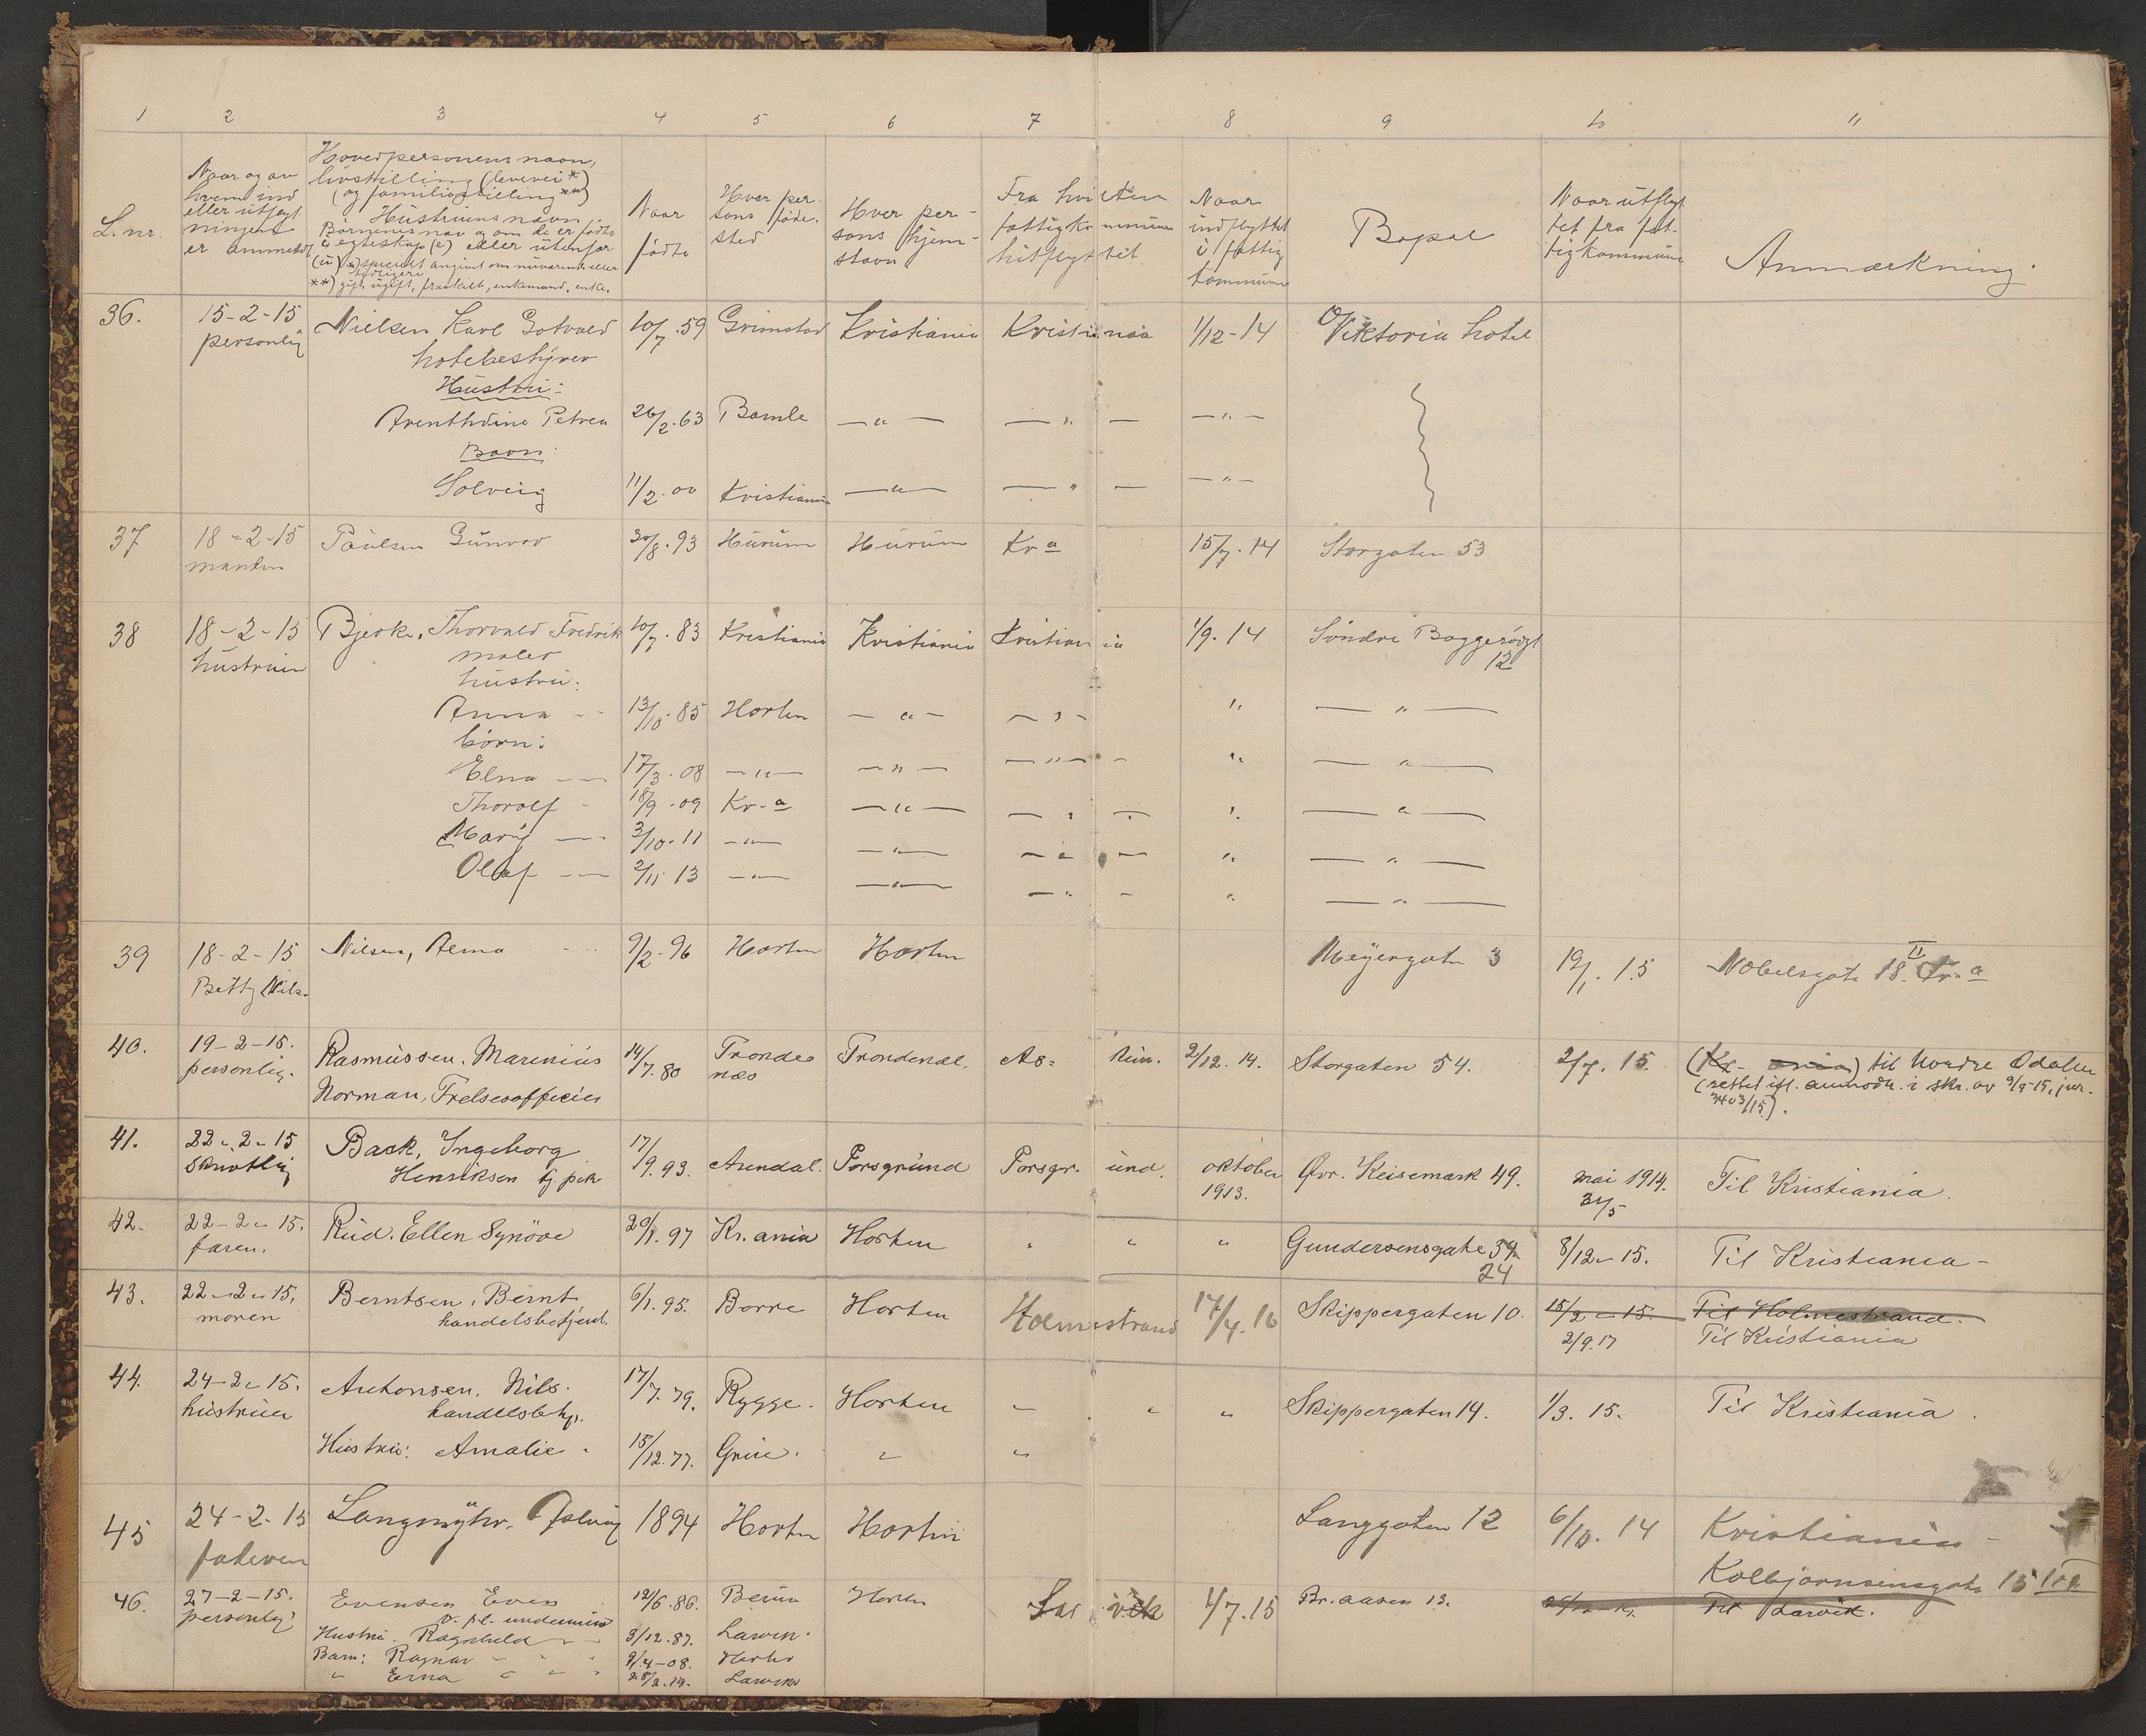 1 2 3 4 5 6 7 8 9 10 11
L. nr.
Naar og av
hvem ind
eller utflyt
ningen
er anmeldt
Hovedpersonens navn,
livsstilling (levevei *)
(og familiestilling **)
Hustruens navn,
Barnenes nav og om de er fødte
i egteskap (e) eller utenfor
(u) *) specielt angivet om nuværende eller
tidligere
**) gift, ugift, fraskilt, enkemand, enke.
Naar
født
Hver per
sons føde-
sted
Hver per-
sons hjem-
stavn
Fra hvilken
fattigkommune
hitflyttet
Naar
indflyttet
i fattig
kommune
Bopæl
Naar utflyt
tet fra fat-
tigkommune
Anmærkning.
36. 15-2-15 Nielsen Karl Gotvald 10/7.59 Grimstad Kristiania Kristiania 1/12-14 Viktoria hotel
personlig hotelbestyrer
Hustru:
Arenthdine Petrea 26/2.63 Bamle —"— —"— —"—
Barn:
Solveig 11/2.00 Kristiania —"— —"— —"—
37 18-2-15 Paulsen Gunvor 30/8.93 Hurum Hurum Kr a 15/7.14 Storgaten 53
manden
38 18-2-15 Bjerke, Thorvald Fredrik 10/7.83 Kristiania Kristiania Kristiania 1/9.14 Søndre Baggerødgt
hustruen maler 12
hustru:
Anna 13/10.85 Horten —"— —"— " —"—
børn:
Elna 17/3.08 —"— —"— —"— " —"—
Thorolf 18/9.09 Kr-a —"— —"— " —"—
Mary 3/10.11 —"— —"— —"— " —"—
Olaf 2/11 13 —"— —"— —"— " —"—
39 18-2-15 Nilsen, Alma 9/2.96 Horten Horten Meyergaten 3 19/1.15 Nobelsgate 18. II Kr.a
Betty Nils.
40. 19-2-15. Rasmussen. Marenius 14/7.80 Trondenæs Trondenæs. As= kim. 2/12.14. Storgaten 54. 2/7.15 (Kr. ania) til Nordre Odalen
personlig. Norman, Frelsesofficier (rettet ifl. anmodn. i skr. av 9/9-15, jur.
3403/15).
41. 22-2-15 Back, Ingeborg 17/9.93. Arendal. Porsgrund Porsgrund. oktober Øvr. Keisemark 49. mai 1914. Til Kristiania.
Skriftlig Henriksen tj. pike 1913. 31/5
42. 22-2-15. Rud. Ellen Synøve 20/1.97 Kr. ania Horten " " " Gundersensgate 34 8/12-15. Til Kristiania-
faren. 24
43. 22-2-15. Berntsen, Bernt 6/1.95. Borre Horten Holmestrand 17/4.16 Skippergaten 10. 15/2-15 Til Holmestrand.
moren handelsbetjent. 2/9.17 Til Kristiania
44. 24-2-15. Antonsen, Nils. 17/7.79. Rygge. Horten " " " Skippergaten 14. 1/3.15. Til Kristiania.
hustruen handelsbetj.
Hustru: Amalie 15/12.77. Grue. " "
45 24-2-15 Langmyhr, 1894 Horten Horten Langgaten 12 6/10.14 Kristiania
faderen Kolbjørnsensgate 15
46. 27-2-15. Evensen Even 12/6.86. Horten Larvik 1/7.15 Br. aasen 13. Til Larvik.
personlig
Hustru: Ragnhild 3/12.87. Larvik.
Barn: Ragnar 9/4-08. Horten
" Erna 28/2.14. Larvik